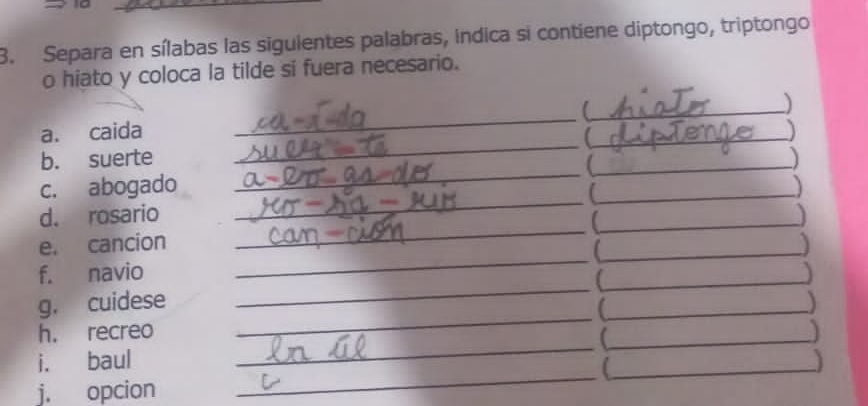 3. Separa en sílabas las siguientes palabras, indica si contiene diptongo, triptongo
o hiato y coloca la tilde si fuera necesario.
a. caida ca-í-da ( hiato )
b. suerte suer-te ( diptongo )
c. abogado a-bo-ga-do ( )
d. rosario ro-sa-rio ( )
e. cancion can-ción ( )
f. navio ( )
g. cuidese ( )
h. recreo ( )
i. baul úl ( )
j. opcion ( )